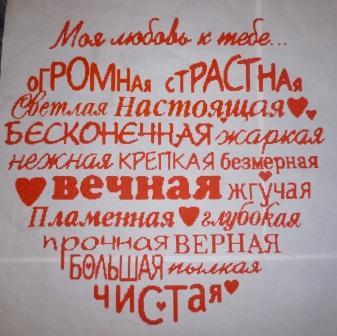 Моя любовь к тебе...
ОГРОМНАЯ СТРАСТНАЯ
Светлая Настоящая
БЕСКОНЕЧНАЯ жаркая
нежная КРЕПКАЯ безмерная
вечная жгучая
Пламенная глубокая
прочная ВЕРНАЯ
БОЛЬШАЯ пылкая
ЧИСТАЯ